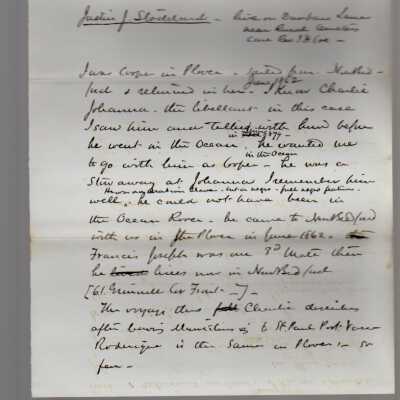 Justin J Stoddard — lives on Dartmouth Lane
near Rural Cemetery
care
I was Cooper in Plover — sailed from New Bed-
ford & returned in her. June 1862 I know Charlie
Johanna — the libellant in this case
I saw him and talked with him before
in 1879 —
he went in the Ocean. he wanted me
to go with him as Cooper — he was a
in the Ocean
Stow away at Johanna I remember him
well, he could not have been in
the Ocean Rover. he came to New Bedford
with us in the Plover in June 1862.
Francis Joseph was our 3d Mate then
he lives now in New Bedford
[61. Grinnell Cor Front — ]—
The voyage thus Charlie describes
after leaving Mauritius is to St Paul Port
Rodrigue is the same in Plover, — so
far —